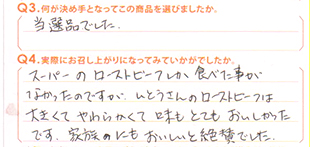 Q3.何が決め手となってこの商品を選びましたか。
当選品でした。
Q4.実際にお召し上がりになってみていかがでしたか。
スーパーのローストビーフしか食べた事が
なかったのですが、いとうさんのローストビーフは
大きくてやわらかくて味もとてもおいしかった
です。家族のにもおいしいと絶賛でした。